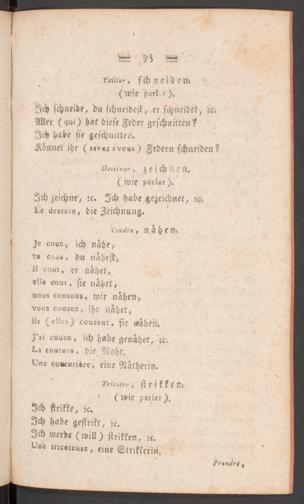 = 93 =
Tailler, schneiden.
(wie parler).
Ich schneide, du schneidest, er schneidet, ꝛc.
Wer (qui) hat diese Feder geschnitten?
Ich habe sie geschnitten.
Könnet ihr (savez-vous) Federn schneiden?
Dessiner, zeichnen.
(wie parler).
Ich zeichne, ꝛc. Ich habe gezeichnet, ꝛc.
Le dessein, die Zeichnung.
Coudre, nähen.
Je cous, ich nähe,
tu cous, du nähest,
il cout, er nähet,
elle cout, sie nähet,
nous cousons, wir nähen,
vous cousez, ihr nähet,
ils (elles) cousent, sie nähen.
J'ai cousu, ich habe genähet, ꝛc.
La couture, die Naht.
Une couturière, eine Nätherin.
Tricoter, strikken.
(wie parler).
Ich strikke, ꝛc.
Ich habe gestrikt, ꝛc.
Ich werde (will) strikken, ꝛc.
Une tricoteuse, eine Strikkerin.
Prendre,